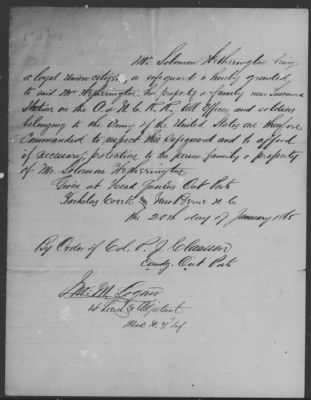 Mr. Solomon Wetherington being
a loyal Union citizen, a safeguard is hereby granted
to said Mr Wetherington his property & family near
Station on the A & N. C. R. R. All Officers and soldiers
belonging to the Army of the United States are therefore
Commanded to respect this safeguard and to afford
if necessary, protection to the person family & property
of Mr. Solomon Wetherington.
Given at Head Quarters Out Posts
Bachelors Creek New Berne N. C.
the 20th day of January 1865
By Order of Col. P. J. Claassen
Comdg. Out Posts
M. Logan
1st Lieut & Adjutant